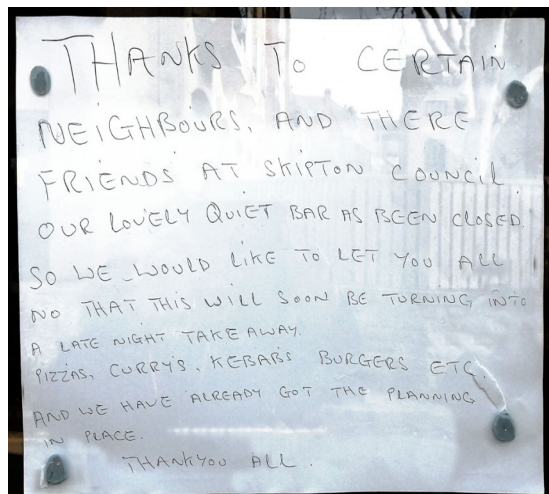 THANKS TO CERTAIN
NEIGHBOURS, AND THERE
FRIENDS AT SKIPTON COUNCIL
OUR LOVELY QUIET BAR AS BEEN CLOSED.
SO WE WOULD LIKE TO LET YOU ALL
NO THAT THIS WILL SOON BE TURNING INTO
A LATE NIGHT TAKE AWAY.
PIZZAS, CURRY'S, KEBABS BURGERS ETC.
AND WE HAVE ALREADY GOT THE PLANNING
IN PLACE.
THANKYOU ALL.